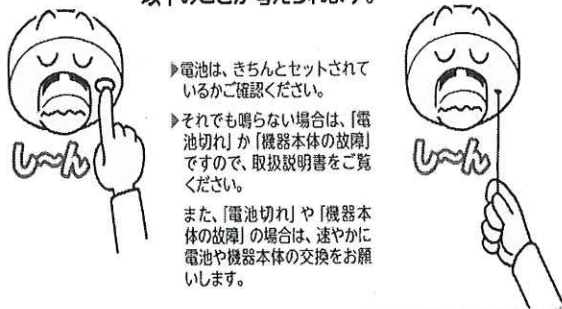 以下のことが考えられます。
▶電池は、きちんとセットされて
いるかご確認ください。
▶それでも鳴らない場合は、「電
池切れ」か「機器本体の故障」
ですので、取扱説明書をご覧
ください。
また、「電池切れ」や「機器本
体の故障」の場合は、速やかに
電池や機器本体の交換をお願
いします。
し〜ん
し〜ん